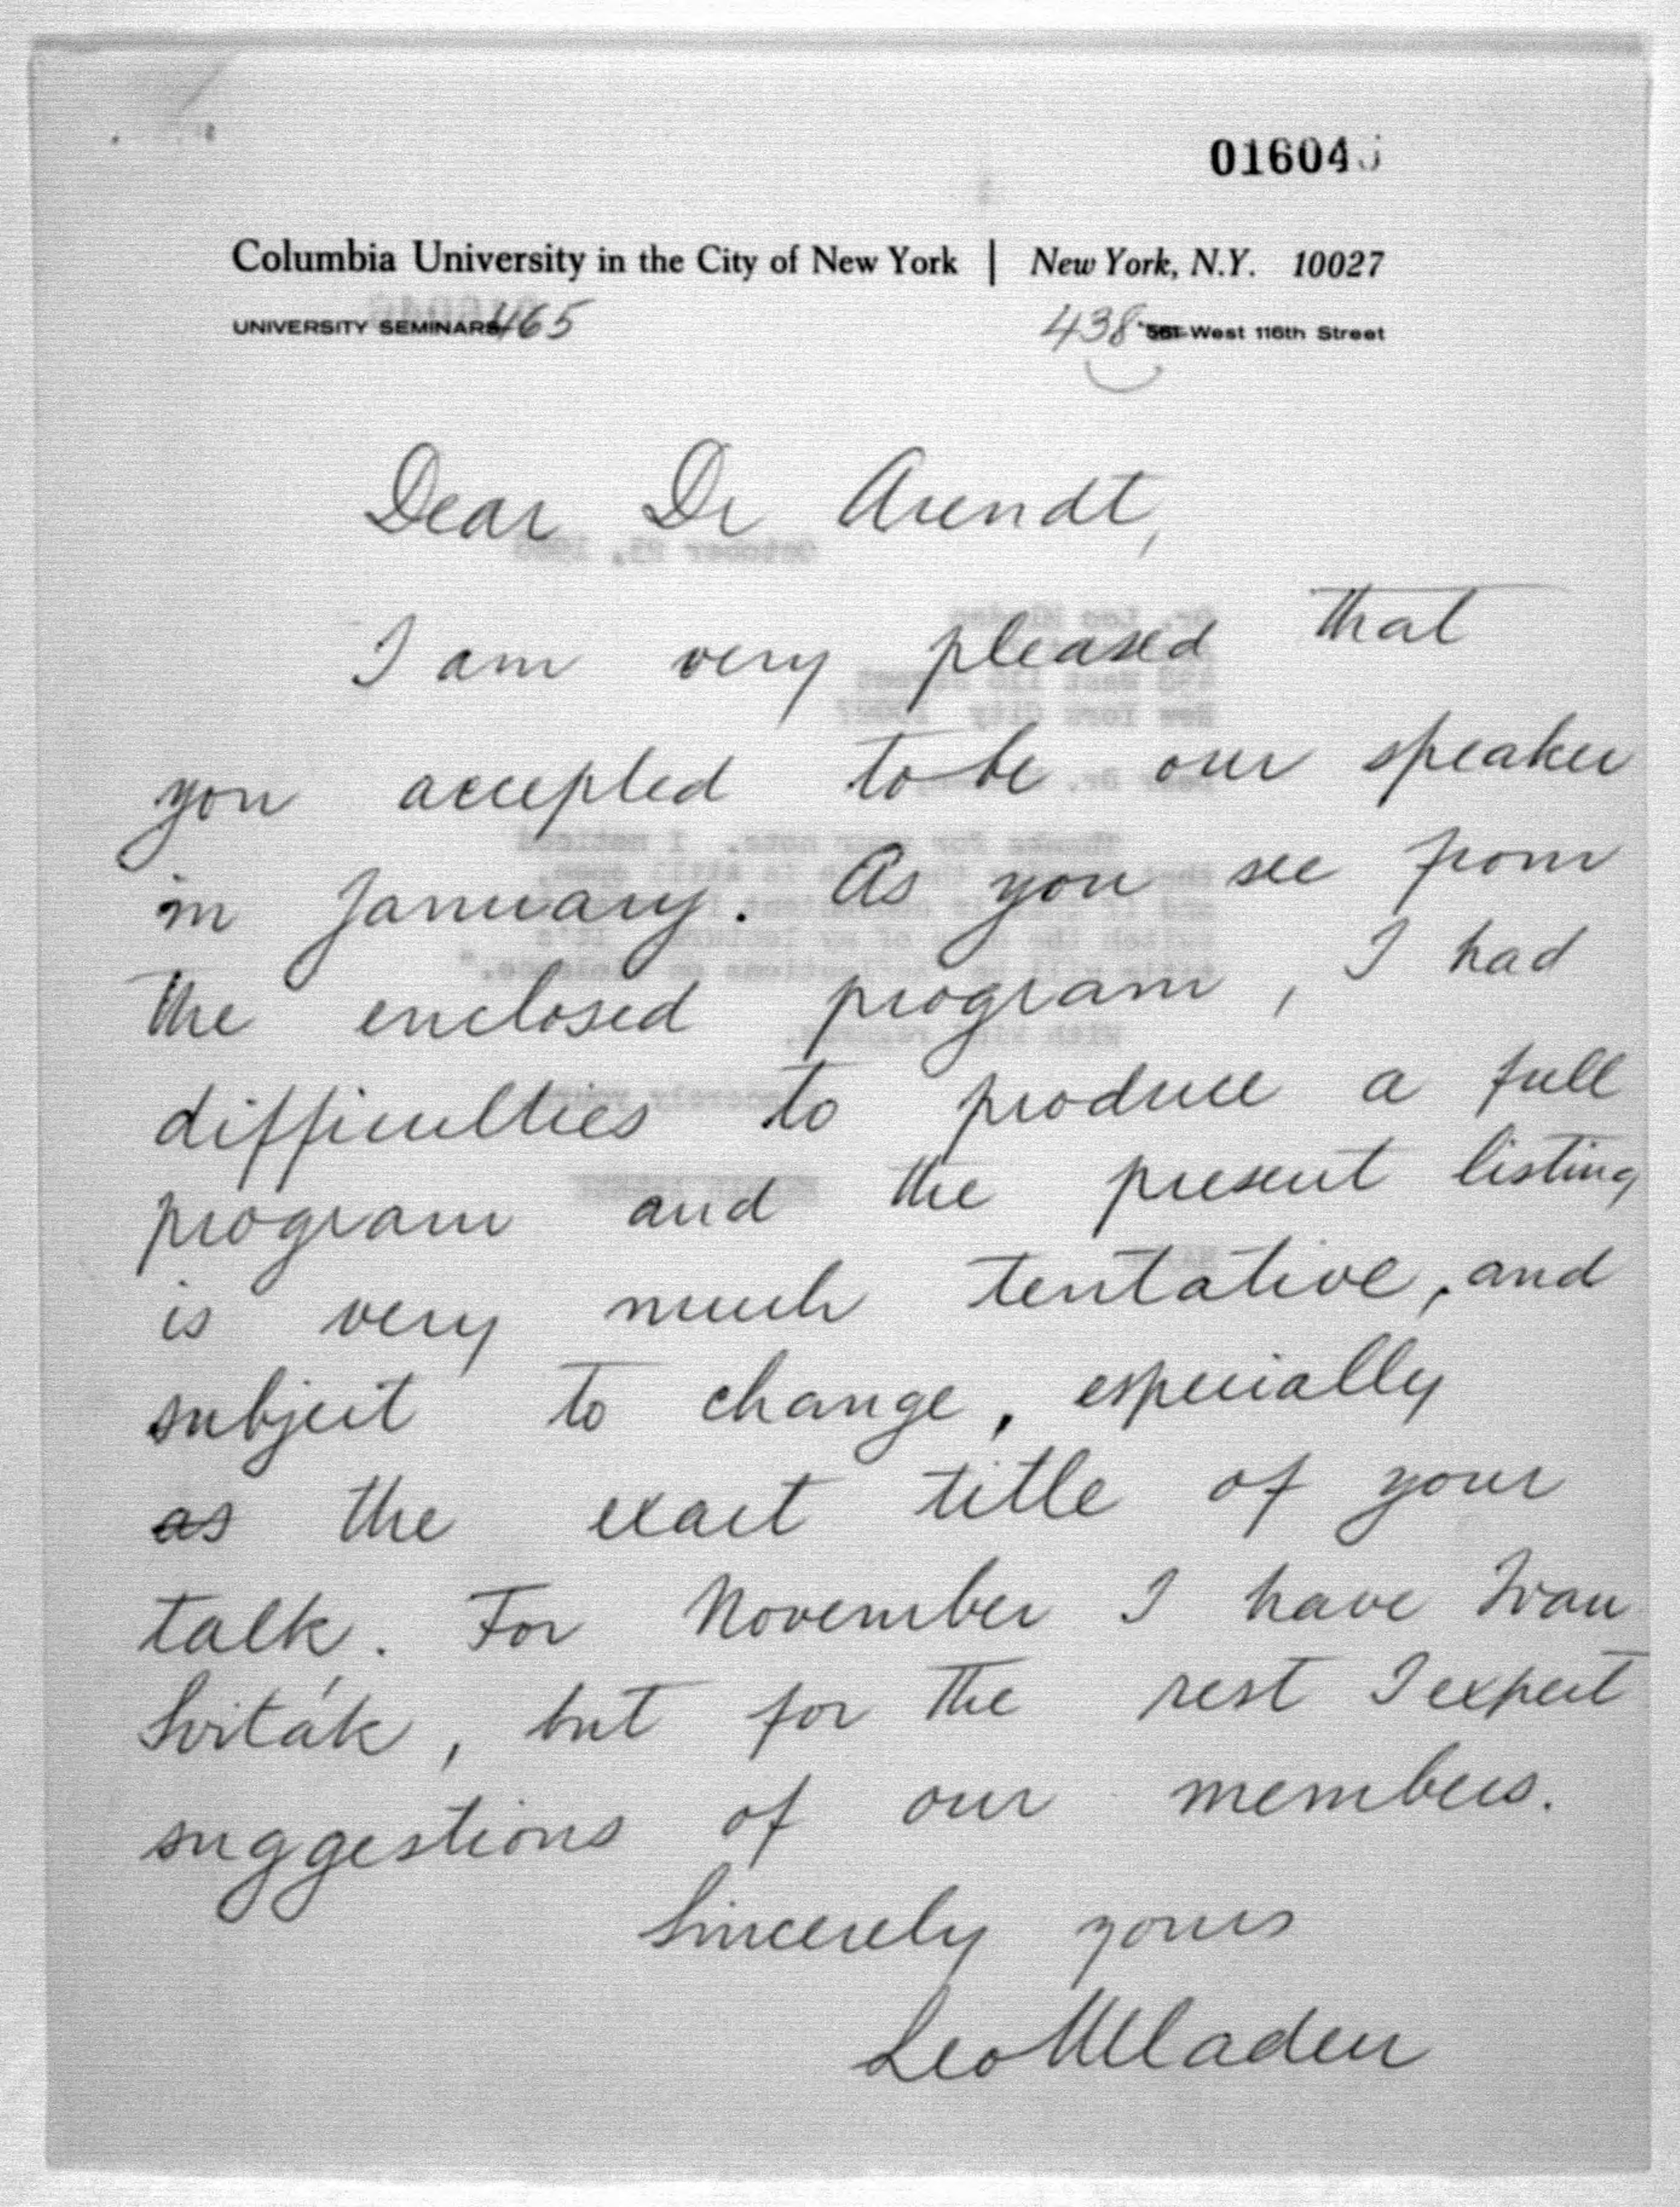 01604
Columbia University in the City of New York | New York, N.Y. 10027
UNIVERSITY SEMINARS 465 438 561 West 116th Street
Dear Dr Arendt,
I am very pleased that
you accepted to be our speaker
in January. As you see from
the enclosed program, I had
difficulties to produce a full
program and the present listing
is very much tentative, and
subject to change, especially
as the exact title of your
talk. For November I have Ivan
Sviták, but for the rest I expect
suggestions of our members.
Sincerely yours
Leo Mladen